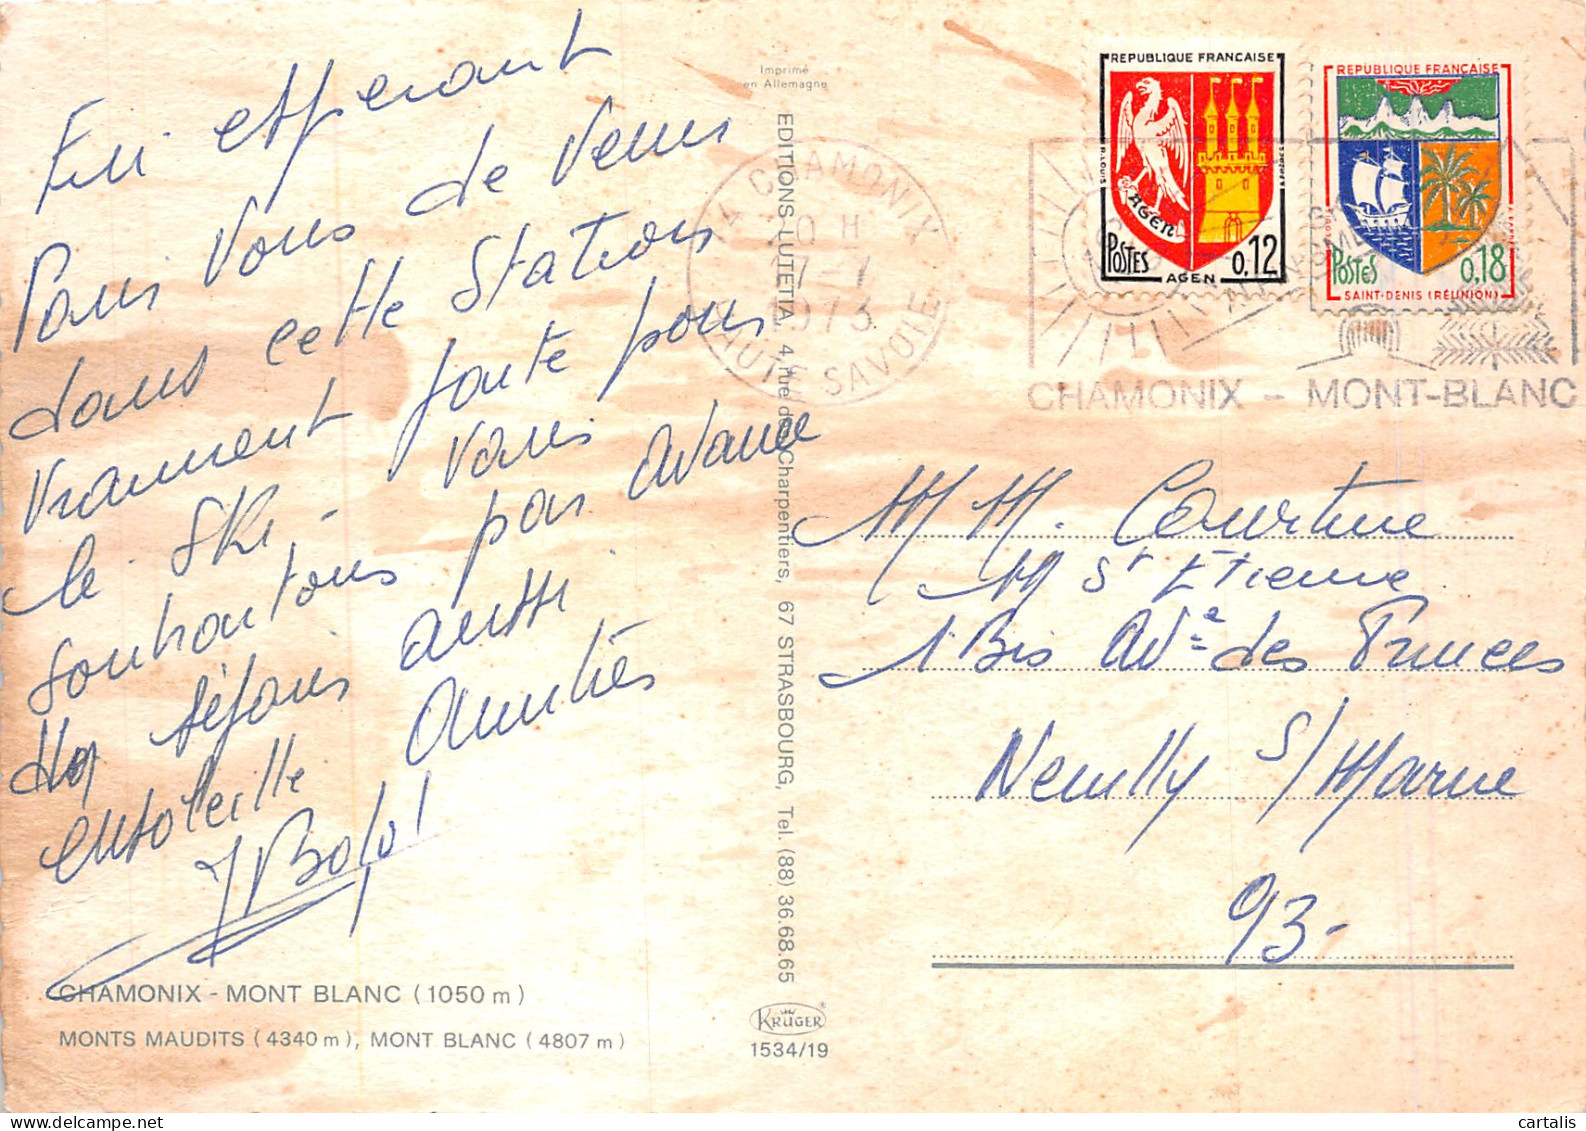 En espérant
Pour vous de venir
dans cette station
vraiment faite pour
le ski - vous
souhaitons par avance
séjour aussi
ensoleillé Amitiés
CHAMONIX - MONT BLANC (1050 m)
MONTS MAUDITS (4340 m), MONT BLANC (4807 m)
Imprimé
en Allemagne
EDITIONS LUTETIA, 4, rue des Charpentiers, 67 STRASBOURG, Tel. (88) 36.68.65
KRÜGER
1534/19
74 CHAMONIX
HAUTE SAVOIE
REPUBLIQUE FRANÇAISE
AGEN
POSTES 0,12
AGEN
REPUBLIQUE FRANÇAISE
POSTES 0,18
SAINT-DENIS (RÉUNION)
CHAMONIX - MONT-BLANC
M M. Courtine
St Etienne
1 Bis Ave des Princes
Neuilly S/Marne
93-
cartalis
www.delcampe.net